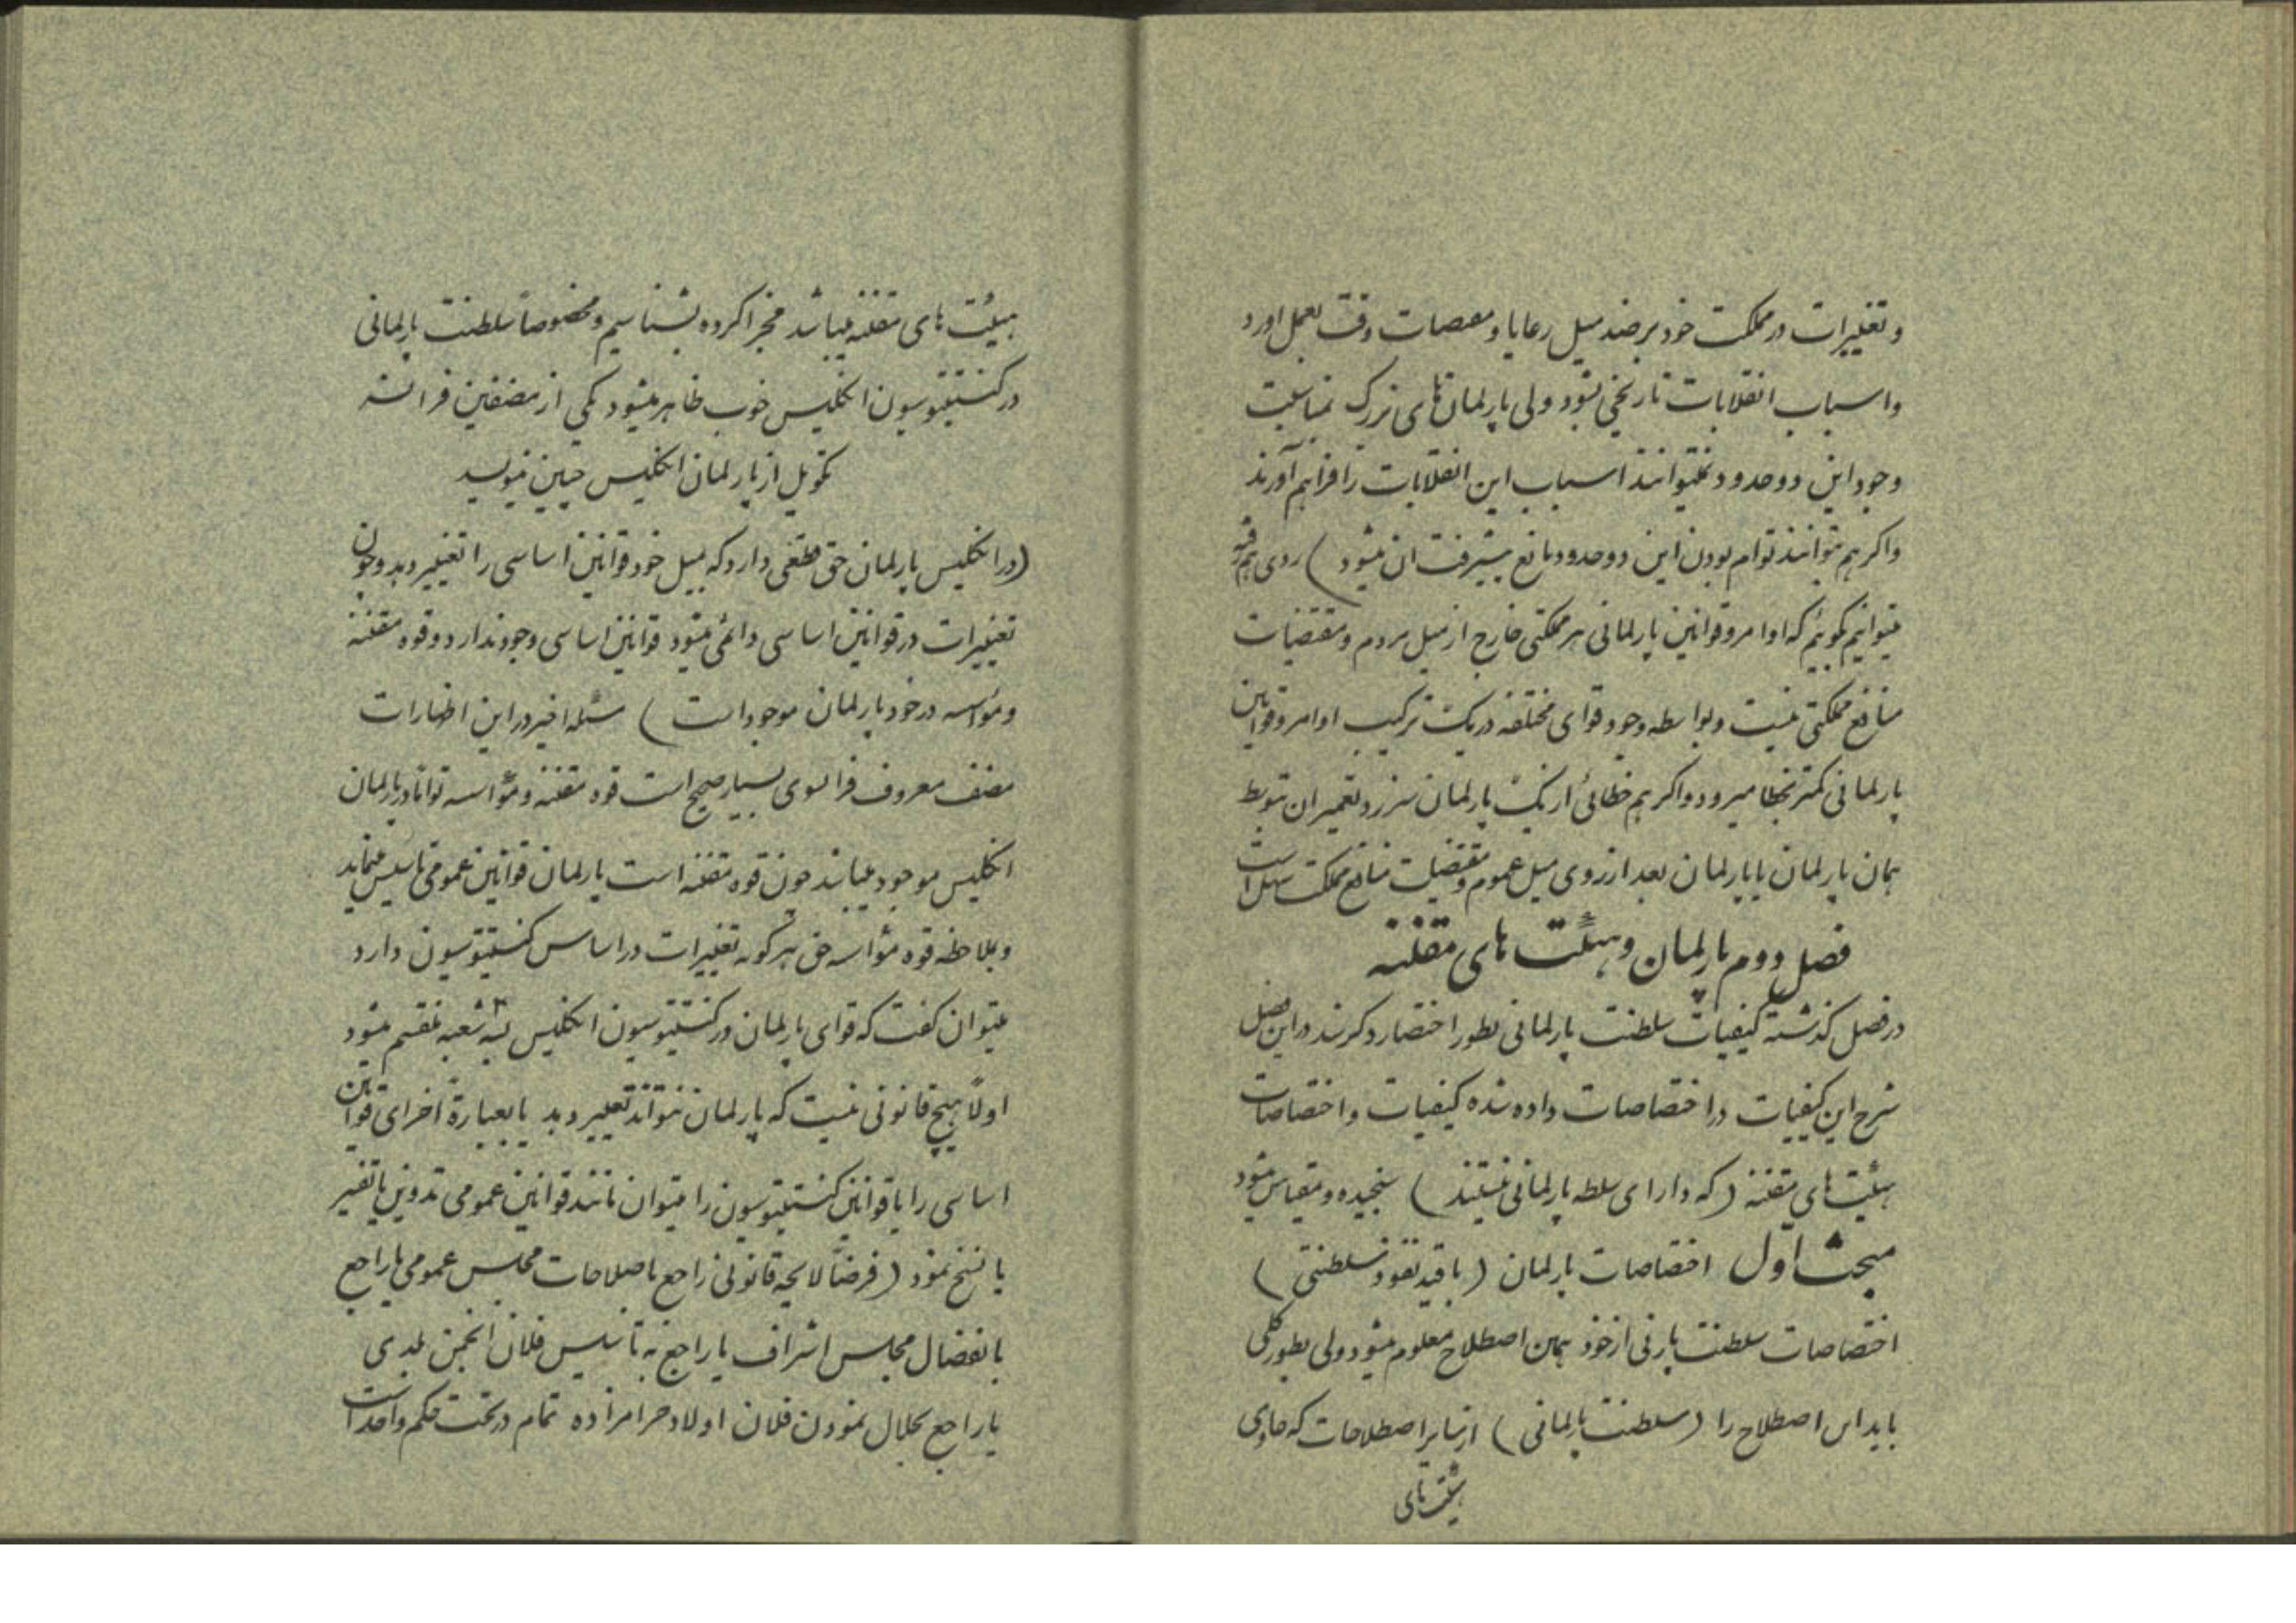 و تغییرات در مملکت خود بر ضد میل رعایا و مقتضیات وقت بعمل اورد
و اسباب انقلابات تاریخی بشود ولی پارلمان‌های بزرگ بمناسبت
وجود این دو حدود نمیتوانند اسباب این انقلابات را فراهم آورند
و اکر هم بتوانند توام بودن این دو حدود مانع پیشرفت ان میشود ) روی هم رفته
میتوانیم بکوئیم که اوامر و قوانین پارلمانی هر مملکتی خارج از میل مردم و مقتضیات
منافع مملکتی نیست و بواسطه وجود قوای مختلفه در یک ترکیب اوامر و قوانین
پارلمانی کمتر بخطا میرود و اکر هم خطائی از یک پارلمان سرزد تعمیر ان بتوسط
همان پارلمان یا پارلمان بعد از روی میل عموم و مقتضیات منافع مملکت سهل است
فصل دوم پارلمان و هیئت های مقننه
در فصل کذشته کیفیات سلطنت پارلمانی بطور اختصار ذکر شد در این فصل
شرح این کیفیات و اختصاصات داده شده کیفیات و اختصاصات
هیئت های مقننه ( که دارای سلطه پارلمانی نیستند ) سنجیده و مقیاس میشود
مبحث اوّل اختصاصات پارلمان ( با قید نفوذ سلطنتی )
اختصاصات سلطنت پارنی از خود همین اصطلاح معلوم میشود ولی بطور کلی
باید این اصطلاح را ( سلطنت پارلمانی ) از سایر اصطلاحات که حاوی
هیئت های
هیئت های مقننه میباشد مجزا کرده بشناسیم و مخصوصاً سلطنت پارلمانی
در کنستیتوسیون انکلیس خوب ظاهر میشود یکی از مصنفین فرانسه
تکویل از پارلمان انکلیس چنین مینویسد
( در انکلیس پارلمان حق مطلقی دارد که بمیل خود قوانین اساسی را تغییر دهد و چون
تغییرات در قوانین اساسی دائمی میشود قوانین اساسی وجود ندارد و قوه مقننه
و مؤاسسه در خود پارلمان موجود است ) مسئله اخیر در این اظهارات
مصنف معروف فرانسوی بسیار صحیح است قوه مقننه و مؤاسسه تواماً در پارلمان
انکلیس موجود میباشد چون قوه مقننه است پارلمان قوانین عمومی تاسیس مینماید
و بملاحظه قوه مؤاسسه حق هر کونه تغییرات در اساس کنستیتوسیون دارد
میتوان کفت که قوای پارلمان در کنستیتوسیون انکلیس بسه شعبه منقسم میشود
اولاً هیچ قانونی نیست که پارلمان نتواند تغییر دهد یا بعبارة اخرای قوانین
اساسی را یا قوانین کنستیتوسیون را میتوان مانند قوانین عمومی تدوین یا تغییر
یا نسخ نمود ( فرضاً لایحه قانونی راجع باصلاحات مجلس عمومی یا راجع
بانفصال مجلس اشراف یا راجع به تأسیس فلان انجمن بلدی
یا راجع بحلال نمودن فلان اولاد حرامزاده تمام در تحت حکم واحد است